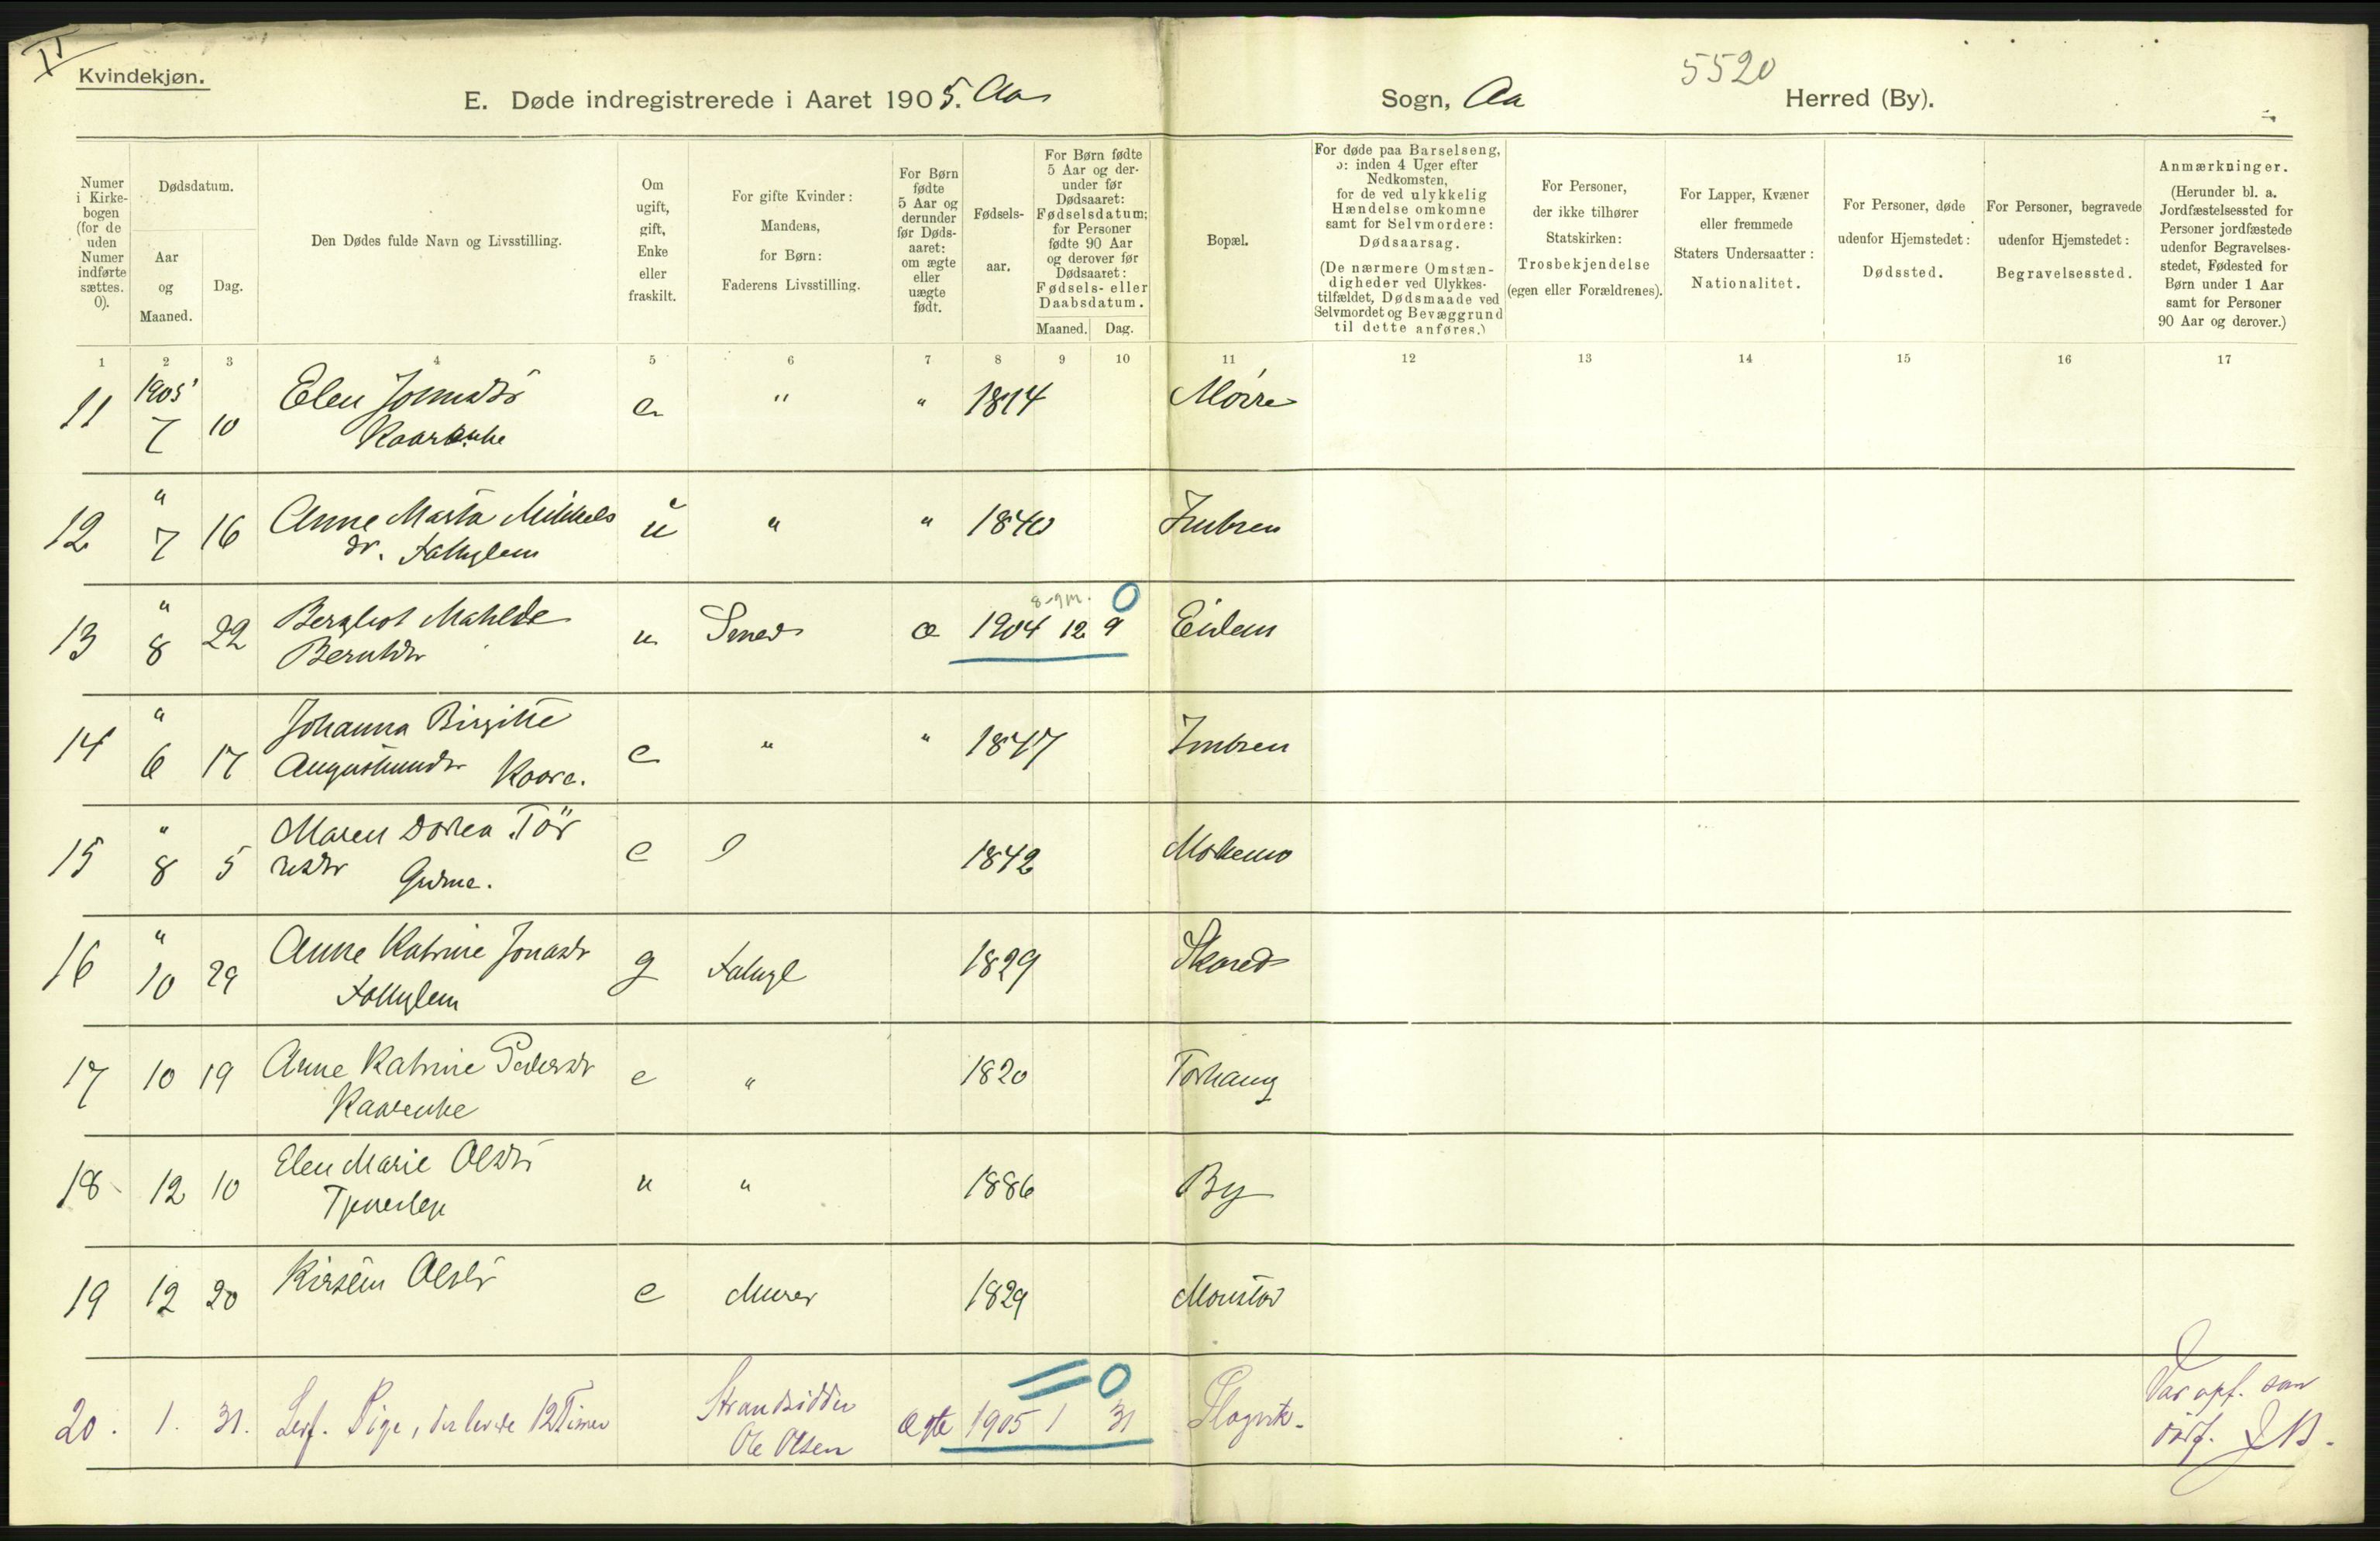 II
Kvindekjøn.
5520
E. Døde indregistrerede i Aaret 1905. Aa Sogn, Aa Herred (By).
Numer i Kirke-bogen (for de uden Numer indførte sættes. 0).
Dødsdatum.
Aar og Maaned.
Dag.
Den Dødes fulde Navn og Livsstilling.
Om ugift, gift, Enke eller fraskilt.
For gifte Kvinder: Mandens, for Børn: Faderens Livsstilling.
For Børn fødte 5 Aar og derunder før Døds-aaret: om ægte eller uægte født.
Fødsels-aar.
For Børn fødte 5 Aar og der-under før Dødsaaret: Fødselsdatum; for Personer fødte 90 Aar og derover før Dødsaaret: Fødsels- eller Daabsdatum.
Maaned. Dag.
Bopæl.
For døde paa Barselseng, ɔ: inden 4 Uger efter Nedkomsten, for de ved ulykkelig Hændelse omkomne samt for Selvmordere: Dødsaarsag.
(De nærmere Omstæn-digheder ved Ulykkes-tilfældet, Dødsmaade ved Selvmordet og Bevæggrund til dette anføres.)
For Personer, der ikke tilhører Statskirken: Trosbekjendelse (egen eller Forældrenes).
For Lapper, Kvæner eller fremmede Staters Undersaatter: Nationalitet.
For Personer, døde udenfor Hjemstedet: Dødssted.
For Personer, begravede udenfor Hjemstedet: Begravelsessted.
Anmærkninger.
(Herunder bl. a. Jordfæstelsessted for Personer jordfæstede udenfor Begravelses-stedet, Fødested for Børn under 1 Aar samt for Personer 90 Aar og derover.)
1 2 3 4 5 6 7 8 9 10 11 12 13 14 15 16 17
11 1905 7 10 Elen e " " 1814 Mörre
12 " 7 16 Anne Marta Mikkels u " " 1840
dr. Fattiglem
13 " 8 22 Bergliot Mathilde u Smed æ 1904 12 9 Eidem
8-9 M. 0
Berntdr
14 " 6 17 Johanna Birgitte e " " 1847
Kaare.
15 " 8 5 Maren Dortea Tör e 1842 Mokemo
resdr
16 " 10 29 Anne Katrine Jonasdr g 1829 Skored
Fattiglem
17 10 19 Anne Katrine Pedersdr e " 1820 Torhaug
Kaarenke
18 12 10 Elen Marie Olsdr u " 1886 By
19 12 20 Kirsten Olsdr e Murer 1829 Monstad
20. 1. 31. Pige, der levede 12 Timer Strandsidder Ole Olsen ægte 1905 1 31
0
Var opf. som